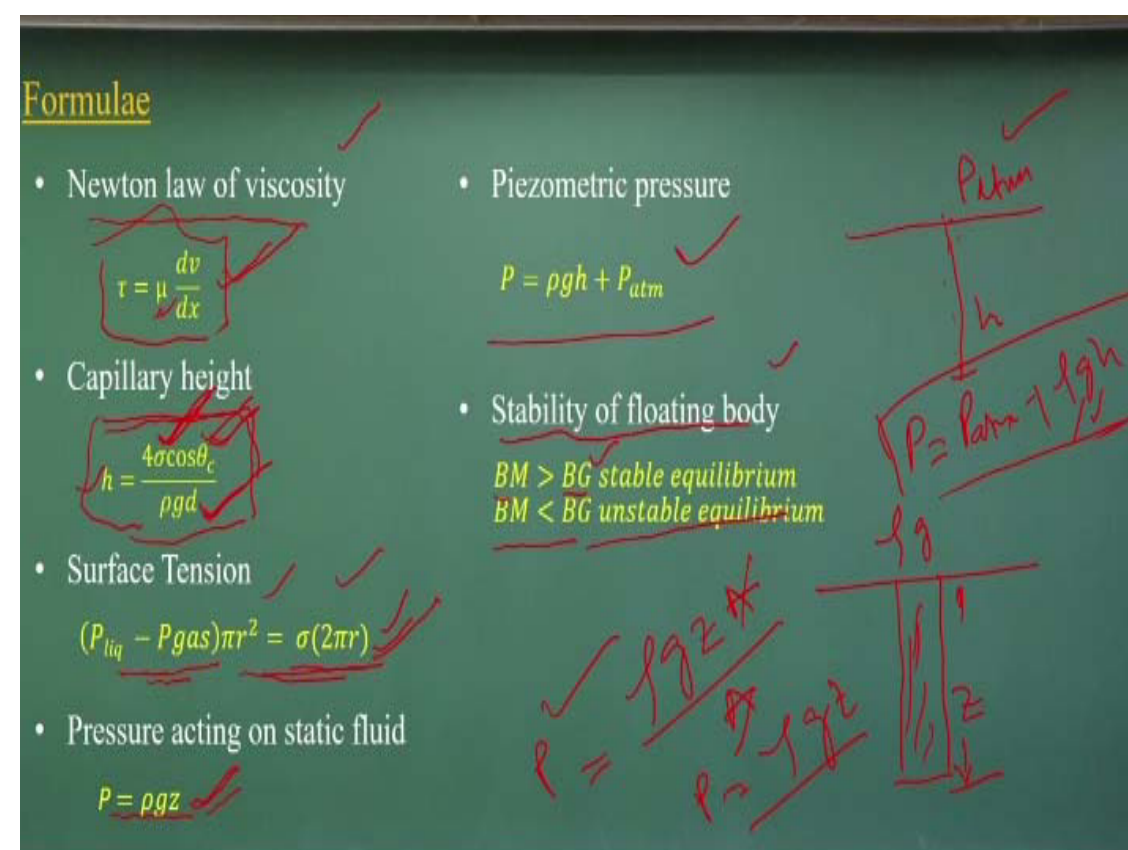 Formulae
• Newton law of viscosity
τ = μ dv/dx
• Capillary height
h = 4σcosθ_c/ρgd
• Surface Tension
(P_liq − Pgas)πr² = σ(2πr)
• Pressure acting on static fluid
P = ρgz
• Piezometric pressure
P = ρgh + P_atm
• Stability of floating body
BM > BG stable equilibrium
BM < BG unstable equilibrium
Patm
h
P = Patm + ρgh
ρg
z
P = ρgz A / A
P = ρgz